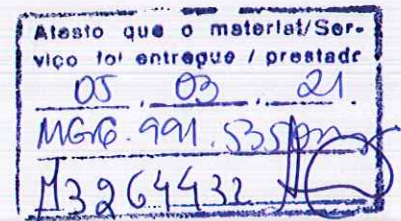 Atesto que o material/Ser-
viço foi entregue / prestado
05 . 03 . 21
MG16.991.535
M3264432